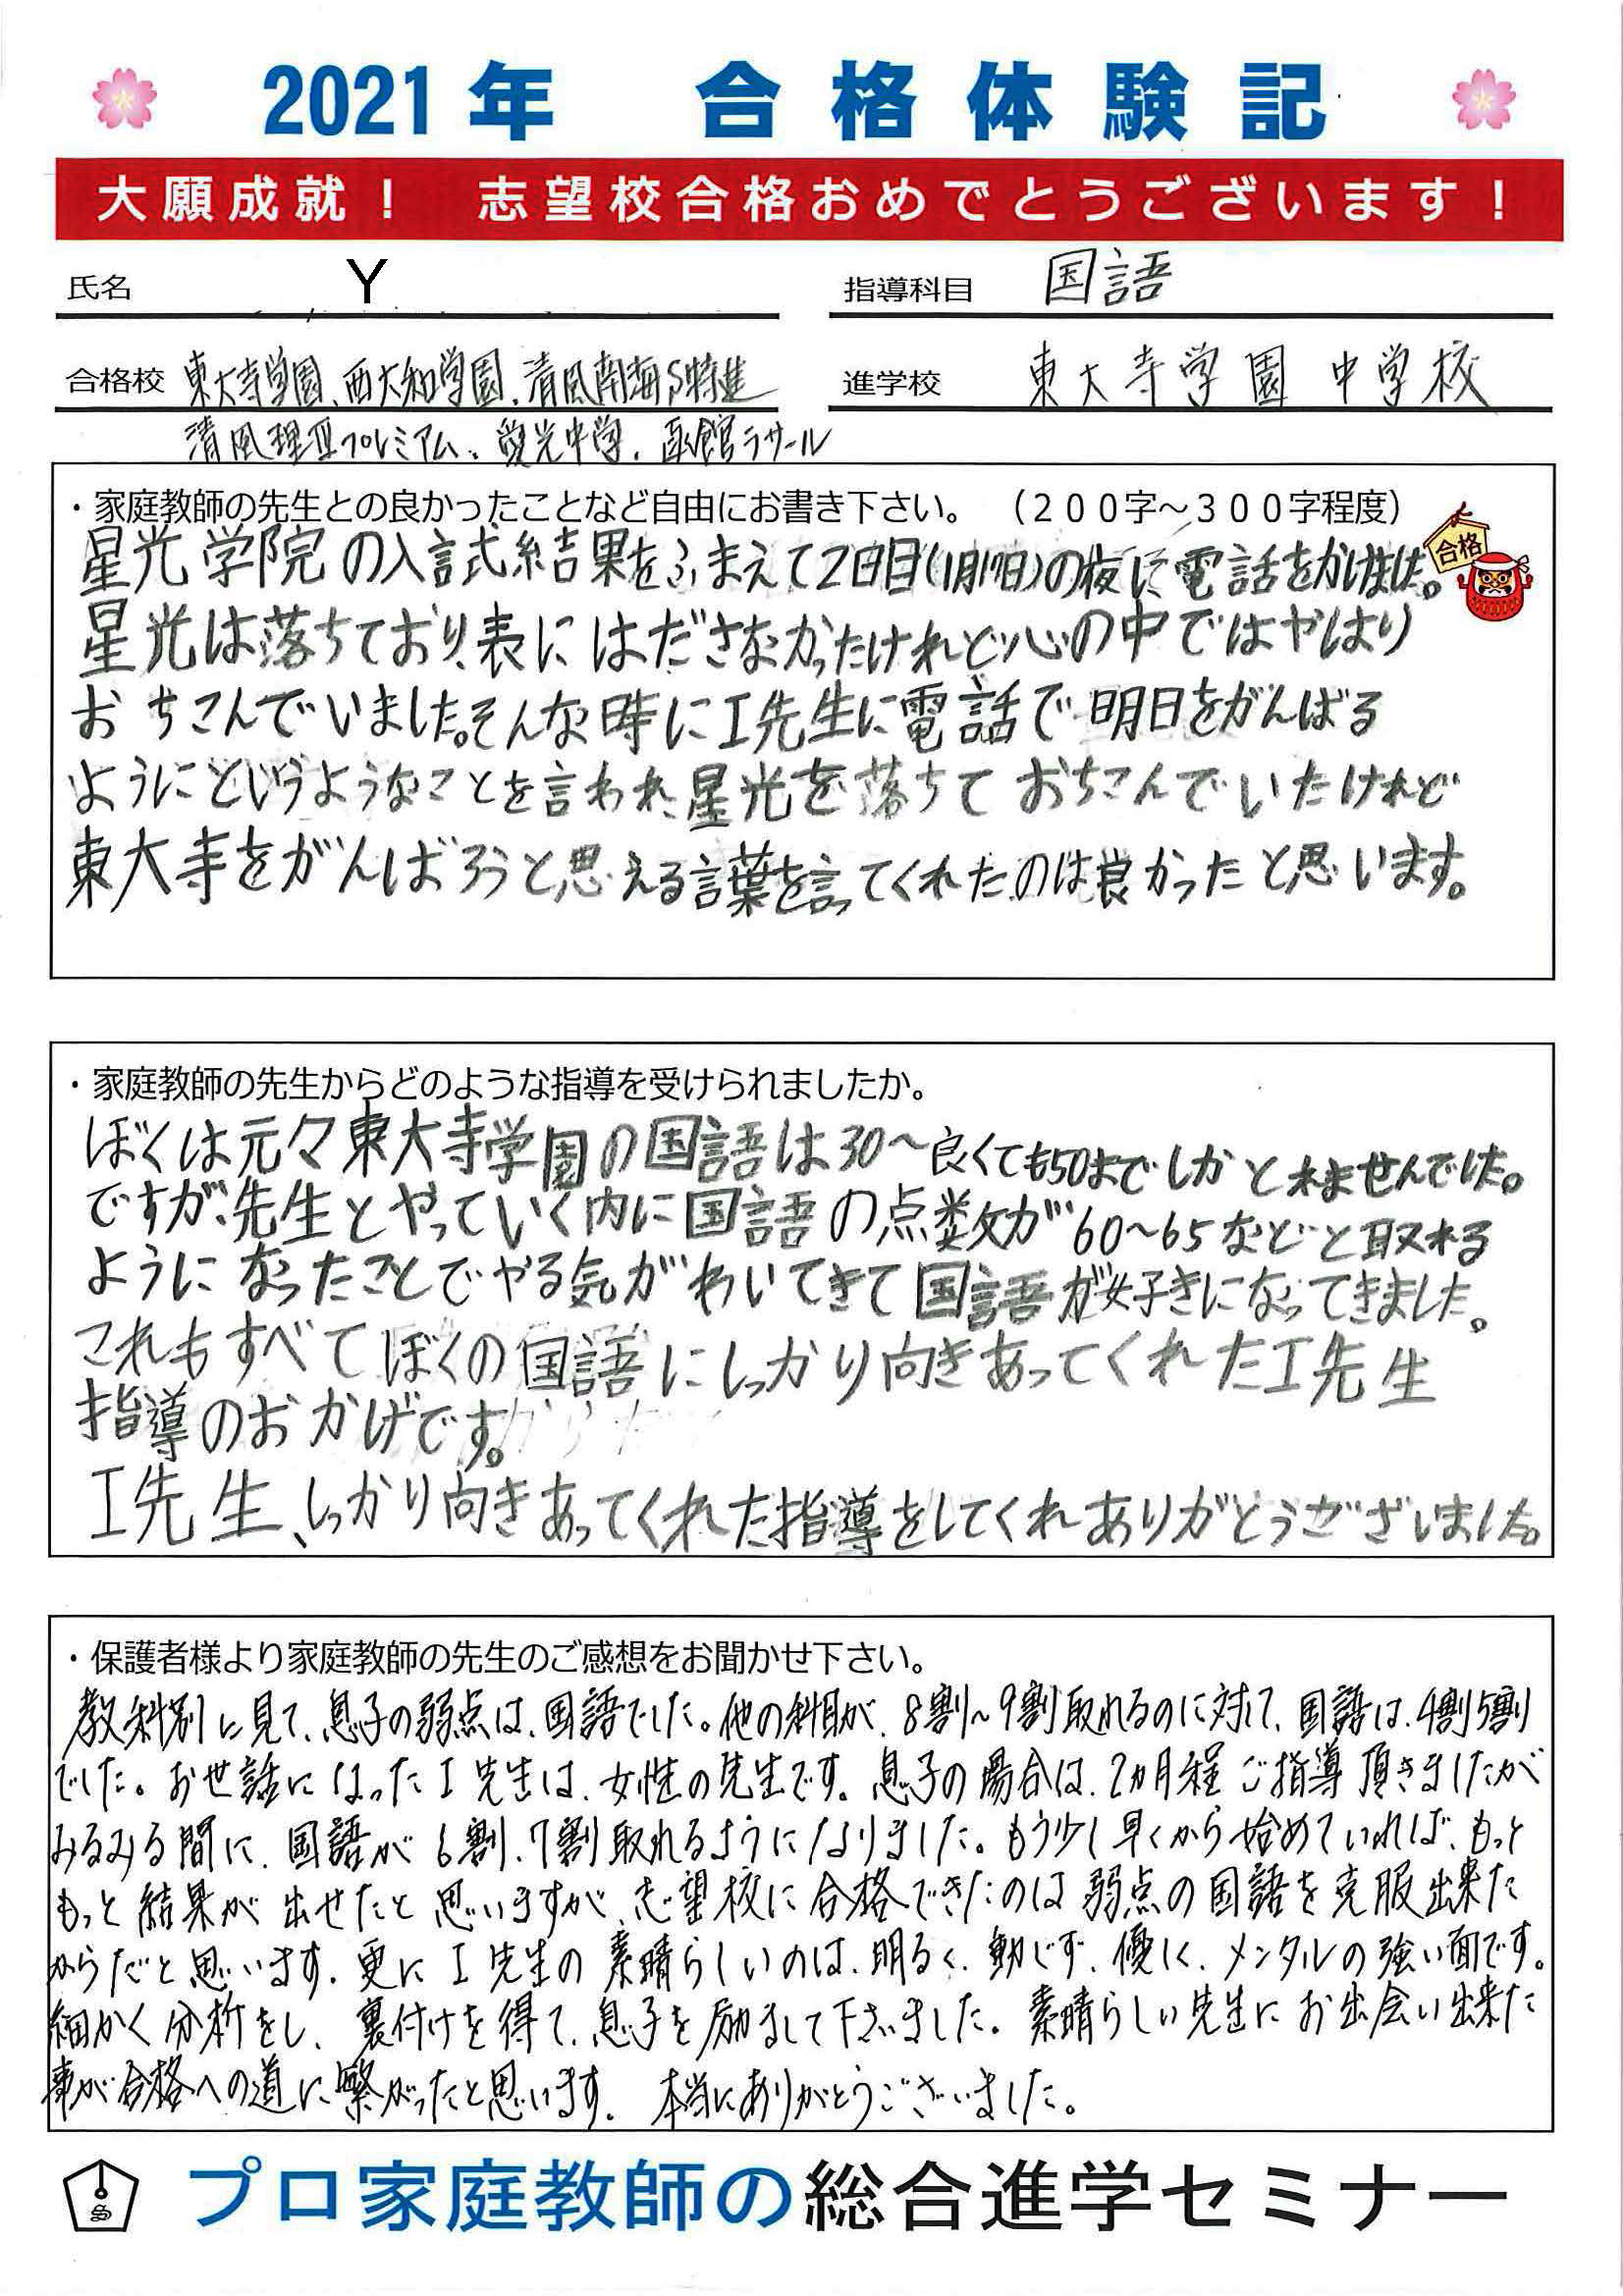 2021年 合格体験記
大願成就！ 志望校合格おめでとうございます！
氏名 Y
指導科目 国語
合格校 東大寺学園、西大和学園、清風南海S特進
清風理Ⅲプレミアム、愛光中学、函館ラサール
進学校 東大寺学園中学校
・家庭教師の先生との良かったことなど自由にお書き下さい。 （２００字～３００字程度）
合格
星光学院の入試結果をふまえて2日目(1月17日)の夜に電話をかけました。
星光は落ちており、表にはださなかったけれど心の中ではやはり
おちこんでいました。そんな時にI先生に電話で明日をがんばる
ようにというようなことを言われ、星光を落ちておちこんでいたけれど
東大寺をがんばろうと思える言葉を言ってくれたのは良かったと思います。
・家庭教師の先生からどのような指導を受けられましたか。
ぼくは元々東大寺学園の国語は30～良くても50までしかとれませんでした。
ですが、先生とやっていく内に国語の点数が60～65などと取れる
ようになったことでやる気がわいてきて国語が好きになってきました。
これもすべてぼくの国語にしっかり向きあってくれたI先生
指導のおかげです。
I先生、しっかり向きあってくれた指導をしてくれありがとうございました。
・保護者様より家庭教師の先生のご感想をお聞かせ下さい。
教科別に見て、息子の弱点は、国語でした。他の科目が、8割～9割取れるのに対して、国語は、4割5割
でした。お世話になったI先生は、女性の先生です。息子の場合は、2ヵ月程ご指導頂きましたが
みるみる間に、国語が6割、7割取れるようになりました。もう少し早くから始めていれば、もっと
もっと結果が出せたと思いますが、志望校に合格できたのは弱点の国語を克服出来た
からだと思います。更にI先生の素晴らしいのは、明るく、動じず、優しく、メンタルの強い面です。
細かく分析をし、裏付けを得て、息子を励まして下さいました。素晴らしい先生にお出会い出来た
事が合格への道に繋がったと思います。本当にありがとうございました。
プロ家庭教師の総合進学セミナー